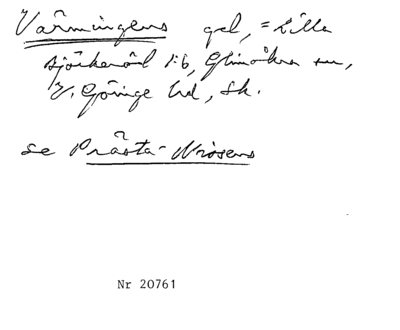 Värmingens gel, = Lilla
Björkeröd 1:6, Glimåkra sn,
V. Göinge hd, Sk.
se Prästa-Nissens
Nr 20761